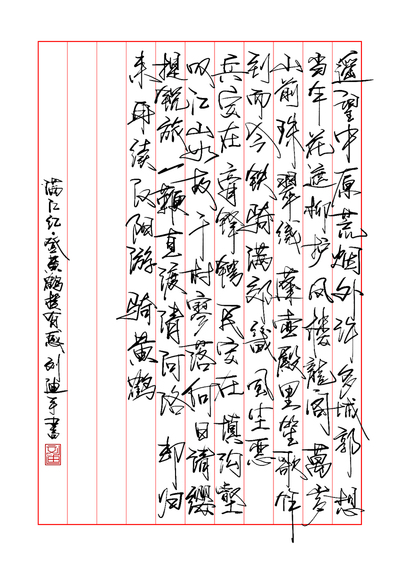 遥望中原荒烟外许多城郭想
当年花遮柳护凤楼龙阁万岁
山前珠翠绕蓬壶殿里笙歌作
到而今铁骑满郊畿风尘恶
兵安在膏锋锷民安在填沟壑
叹江山如故千村寥落何日请缨
提锐旅一鞭直渡清河洛却归
来再续汉阳游骑黄鹤
满江红·登黄鹤楼有感 刘书